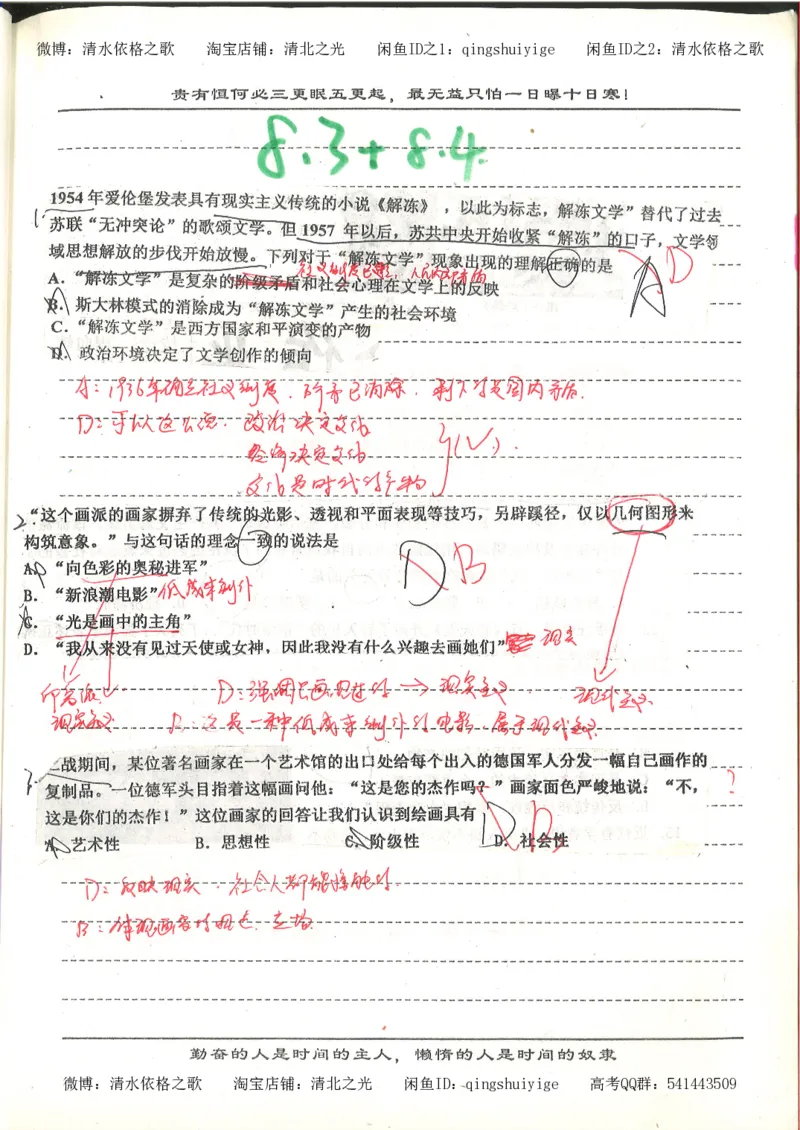 微博：清水依格之歌 淘宝店铺：清北之光 闲鱼ID之1：qingshuiyige 闲鱼ID之2：清水依格之歌
贵有恒何必三更眠五更起，最无益只怕一日曝十日寒！
8.3+8.4.
1954 年爱伦堡发表具有现实主义传统的小说《解冻》，以此为标志，解冻文学”替代了过去
1. 苏联“无冲突论”的歌颂文学。但 1957 年以后，苏共中央开始收紧“解冻”的口子，文学领
域思想解放的步伐开始放慢。下列对于“解冻文学”现象出现的理解正确的是
A D
A．“解冻文学”是复杂的阶级矛盾和社会心理在文学上的反映
B．斯大林模式的消除成为“解冻文学”产生的社会环境
C．“解冻文学”是西方国家和平演变的产物
D．政治环境决定了文学创作的倾向
A：1936年确立社义制度．阶矛已消除．剩下的是国内矛盾．
D：可以这么德．政治决定文化
经济决定文化 (√)．
文化是时代的产物
2. “这个画派的画家摒弃了传统的光影、透视和平面表现等技巧，另辟蹊径，仅以几何图形来
构筑意象。”与这句话的理念一致的说法是
A．“向色彩的奥秘进军”
D B
B．“新浪潮电影”低成本制作
C．“光是画中的主角”
D．“我从来没有见过天使或女神，因此我没有什么兴趣去画她们”现实
印象派
D：强调只画见过的→现实主义
现代主义
现实主义
B：这是一种低成本制作的电影．属于现代主义
3. 二战期间，某位著名画家在一个艺术馆的出口处给每个出入的德国军人分发一幅自己画作的
复制品。一位德军头目指着这幅画问他：“这是您的杰作吗？”画家面色严峻地说：“不， ？
这是你们的杰作！”这位画家的回答让我们认识到绘画具有 D B
A．艺术性 B．思想性 C．阶级性 D．社会性
D：反映现实．社会人都能接触的．
B：体现画家的思想．立场
勤奋的人是时间的主人，懒惰的人是时间的奴隶
微博：清水依格之歌 淘宝店铺：清北之光 闲鱼ID：qingshuiyige 高考QQ群：541443509